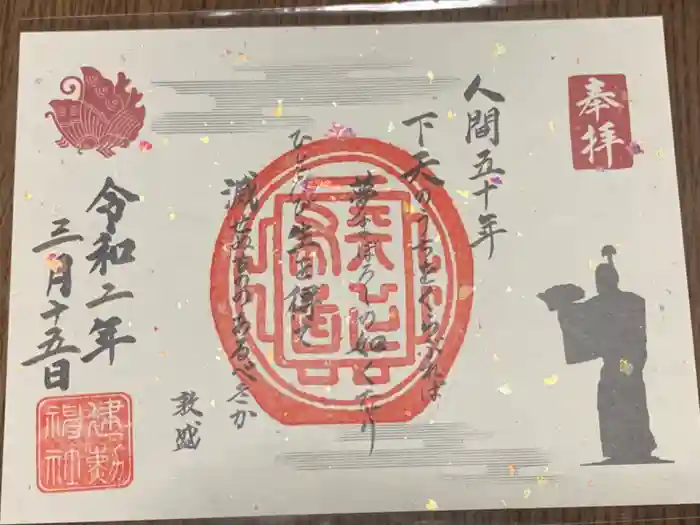 奉拝
人間五十年
下天のうちをくらぶれば
夢まぼろしの如くなり
ひとたび生を得て
滅せぬもののあるべきか
敦盛
令和二年
三月十五日
建勲
神社